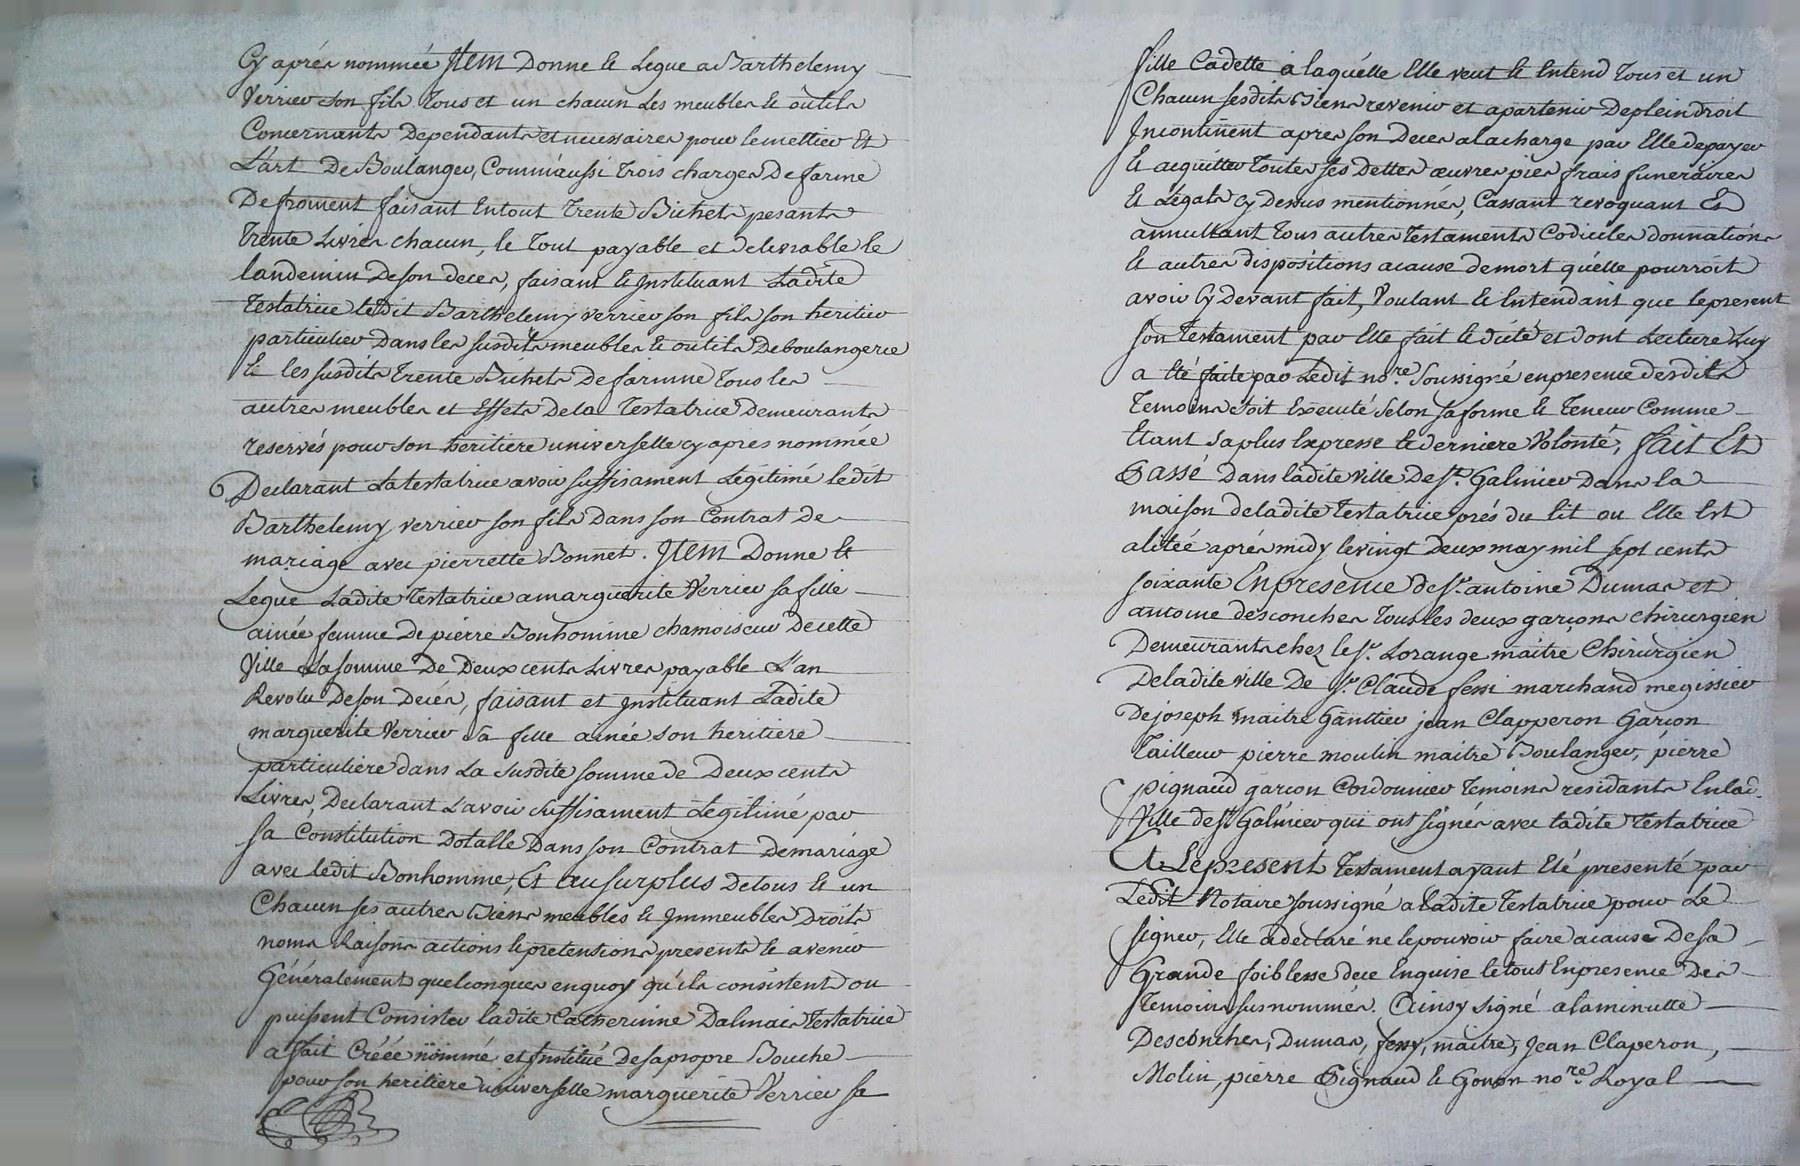 Cy aprés nommée Item Donne et Legue a Barthelemy
Verrier son fils Tous et un chacun Les meubles et outils
Concernants Dependants et necessaires pour le mettier Et
L'art De Boulanger, Comm'aussi Trois charges De farine
De froment faisant En tout Trente Bichets pesants
Trente Livres chacun, le Tout payable et delivrable le
landemin De son deces, faisant et Instituant Ladite
Testatrice ledit Barthelemy verrier son fils son heritier
particulier Dans les susdits meubles et outils De boulangerie
Et les susdits Trente Bichets De farinne Tous les
autres meubles et Effets De la Testatrice Demeurants
reservés pour son heritiere universelle cy apres nommée
Declarant La testatrice avoir suffisament Légitimé ledit
Barthelemy verrier son fils Dans son Contrat De
mariage avec pierrette Bonnet. Item Donne et
Legue Ladite Testatrice a marguerite Verrier sa fille
ainée femme De pierre Bonhomme chamoiseur De cette
Ville La somme De Deux cents Livres payable L'an
Revolu De son Decés, faisant et Instituant Ladite
marguerite Verrier sa fille ainée son heritiere
particuliere dans La susdite somme de Deux cents
Livres, Declarant L'avoir suffisament Légitimé par
sa Constitution Dotalle Dans son Contrat De mariage
avec ledit Bonhomme, Et au surplus De tous et un
Chacun ses autres Biens meubles et Immeubles Droits
noms Raisons actions et pretensions presents et avenir
Généralement quelconques en quoy qu'ils consistent ou
puissent Consister ladite Catherinne Dalmais Testatrice
a fait Créée nommé et Institué De sa propre Bouche
pour son heritiere universelle marguerite Verrier sa
fille Cadette a laquélle Elle veut et Entend Tous et un
Chacun ses dits Biens revenir et apartenir De plein droit
Incontinent apres son Deces a la charge par Elle de payer
Et acquitter Toutes ses Dettes œuvres pies frais funeraires
Et Légats cy Dessus mentionnés, Cassant revoquant Et
annullant Tous autres Testaments Codiciles donnations
Et autres dispositions a cause de mort qu'elle pourroit
avoir Cy Devant fait, Voulant Et Entendant que le present
son Testament par Elle fait et dicté et dont Lecture Luy
a Eté faite par Ledit no.re soussigné en presence desdits
Temoins soit Executé selon sa forme et Teneur Comme
Etant sa plus Expresse et derniere Volonté, fait Et
Passé Dans ladite ville De St. Galmier Dans la
maison de ladite Testatrice prés du lit ou Elle Est
alitéé aprés midy le vingt Deux may mil sept cents
soixante En presence de Sr. antoine Dumas et
antoine desconches Tous les deux garçons chirurgien
Demeurants chez le Sr. Lorange maitre Chirurgien
De la dite ville De Sr. Claude fessi marchand megissier
De joseph maitre Ganttier jean Clapperon Garçon
Tailleur pierre moulin maitre Boulanger, pierre
pignaud garçon Cordonnier Temoins residants En lad.
Ville de St Galmier qui ont signés avec ladite Testatrice
Et Le present Testament ayant Eté presenté par
Ledit Notaire soussigné a ladite Testatrice pour Le
signer, Elle a declaré ne le pouvoir faire a cause De sa
Grande foiblesse de ce Enquise le tout En presence Des
Temoins susnommés. Ainsy signé a la minutte
Desconches, Dumas, fessy, maitre, Jean Claperon,
Molin, pierre Pignaud et Gonon no.re Royal